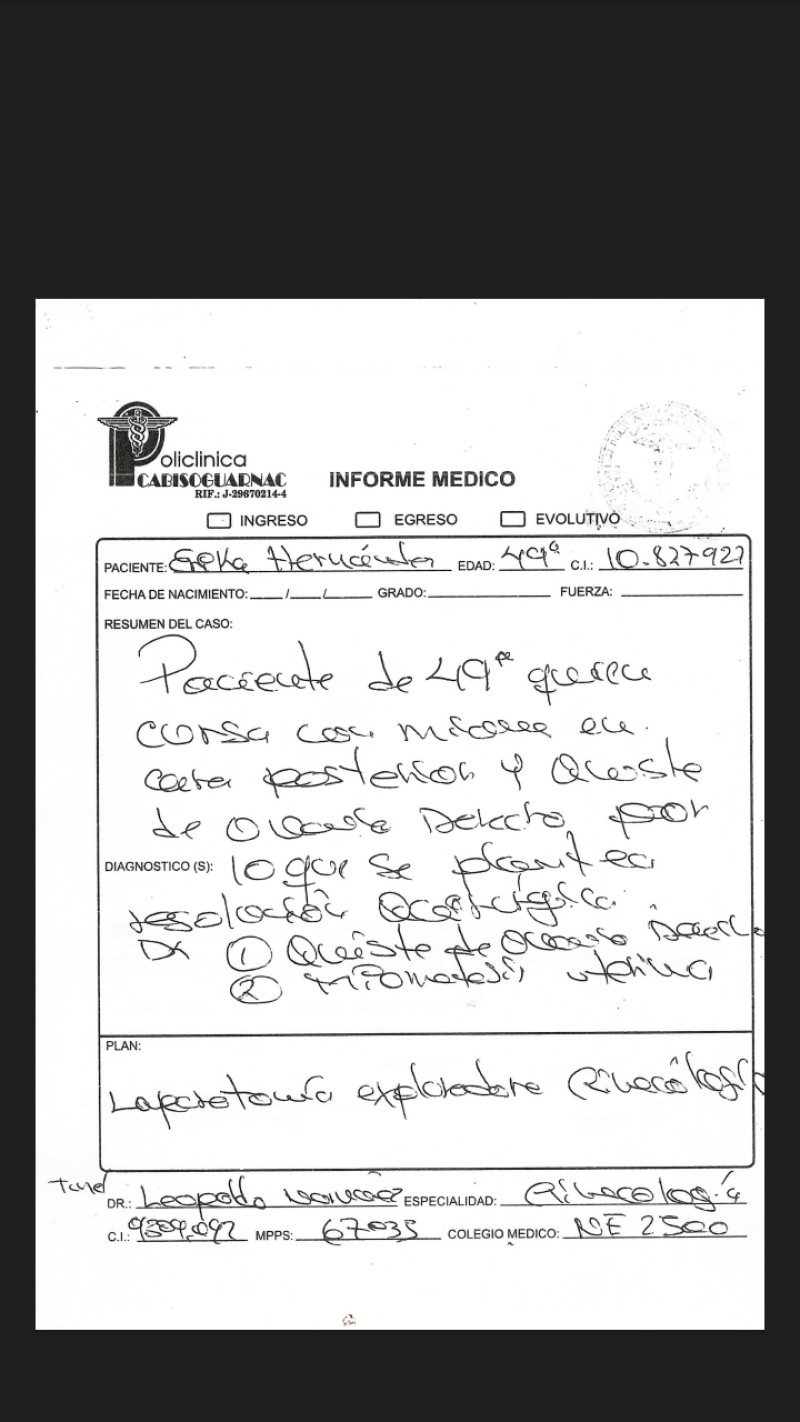 Policlinica
CABISOGUARNAC
RIF.: J-29670214-4
INFORME MEDICO
INGRESO EGRESO EVOLUTIVO
PACIENTE: Hernández EDAD: 49a C.I.: 10.827927
FECHA DE NACIMIENTO: / / GRADO: FUERZA:
RESUMEN DEL CASO:
Paciente de 49a quien
cursa con mioma en
cara posterior y Quiste
de Ovario Derecho por
DIAGNOSTICO (S): lo que se plantea
resolución Quirúrgica.
Dx ① Quiste de Ovario Derecho
② miomatosis uterina
PLAN:
Laparotomía exploradora Ginecológica
DR.: Leopoldo ESPECIALIDAD: Ginecología
C.I.: MPPS: 67035 COLEGIO MEDICO: NE 2500